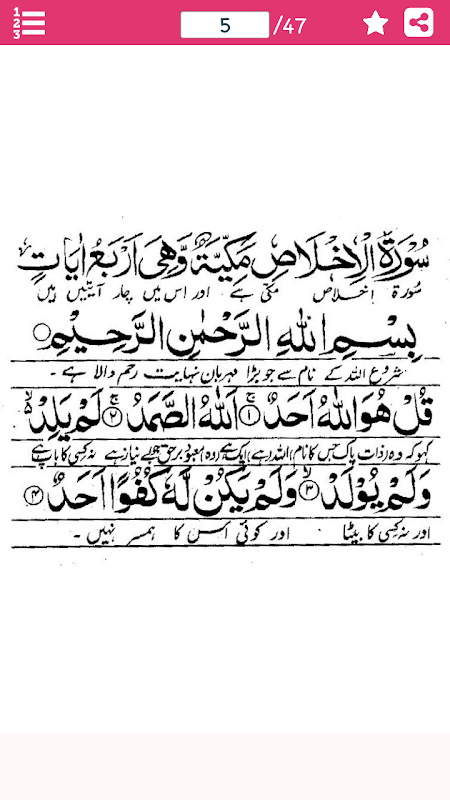 5 /47
سُوْرَةُ الْاِخْلَاصِ مَكِّيَّةٌ وَّهِىَ اَرْبَعُ اٰيَاتٍ
سُورۃ اِخلاص مکی ہے اور اس میں چار آیتیں ہیں
بِسْمِ اللهِ الرَّحْمٰنِ الرَّحِيْمِ
شروع اللہ کے نام سے جو بڑا مہربان نہایت رحم والا ہے ۔
قُلْ هُوَ اللهُ اَحَدٌ ۱ اَللهُ الصَّمَدُ ۲ لَمْ يَلِدْ
کہو کہ وہ (ذات پاک جس کا نام) اللہ (ہے) ایک ہے (وہ) معبود برحق جو بے نیاز ہے نہ کسی کا باپ ہے
وَلَمْ يُوْلَدْ ۳ وَلَمْ يَكُنْ لَّهٗ كُفُوًا اَحَدٌ ۴
اور نہ کسی کا بیٹا اور کوئی اس کا ہمسر نہیں ۔